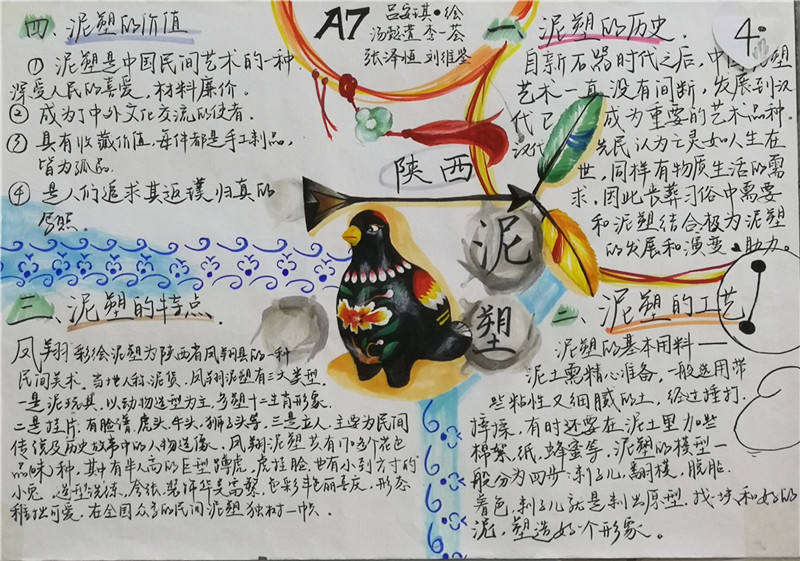 A7
吕安琪·绘
汤懿萱 李一荃
张泽恒 刘维鉴
4
陕西
泥
塑
一 泥塑的历史
自新石器时代之后,中国泥塑
艺术一直没有间断,发展到汉
代已成为重要的艺术品种.
汉代先民认为亡灵如人生在
世,同样有物质生活的需
求,因此丧葬习俗中需要
和泥塑结合,极为泥塑
的发展和演变 助力。
二、泥塑的工艺
泥塑的基本用料——
泥土需精心准备,一般选用带
些粘性又细腻的土,经过捶打,
摔,有时还要在泥土里加些
棉絮,纸,蜂蜜等,泥塑的模型一
般分为四步:制子儿,翻模,脱胎,
着色,制子儿就是制出原型,找一块和好的
泥,塑造好一个形象。
三、泥塑的特点.
凤翔彩绘泥塑为陕西省凤翔县的一种
民间美术.当地人称泥货,凤翔泥塑有三大类型.
一是泥玩具,以动物造型为主,多塑十二生肖形象.
二是挂片,有脸谱,虎头,牛头,狮子头等,三是立人,主要为民间
传说及历史故事中的人物造像,凤翔泥塑共有170多个花色
品 种,其中有半人高的巨型蹲虎,虎挂脸,也有小到方寸的
小兔.造型洗练,夸张,装饰华美富繁,色彩艳丽喜庆,形态
稚拙可爱,在全国众多的民间泥塑独树一帜.
四、泥塑的价值
① 泥塑是中国民间艺术的一种.
深受人民的喜爱,材料廉价。
② 成为了中外文化交流的使者.
③ 具有收藏价值,每件都是手工制品,
皆为孤品.
④ 是人们追求其返璞归真的
写照.